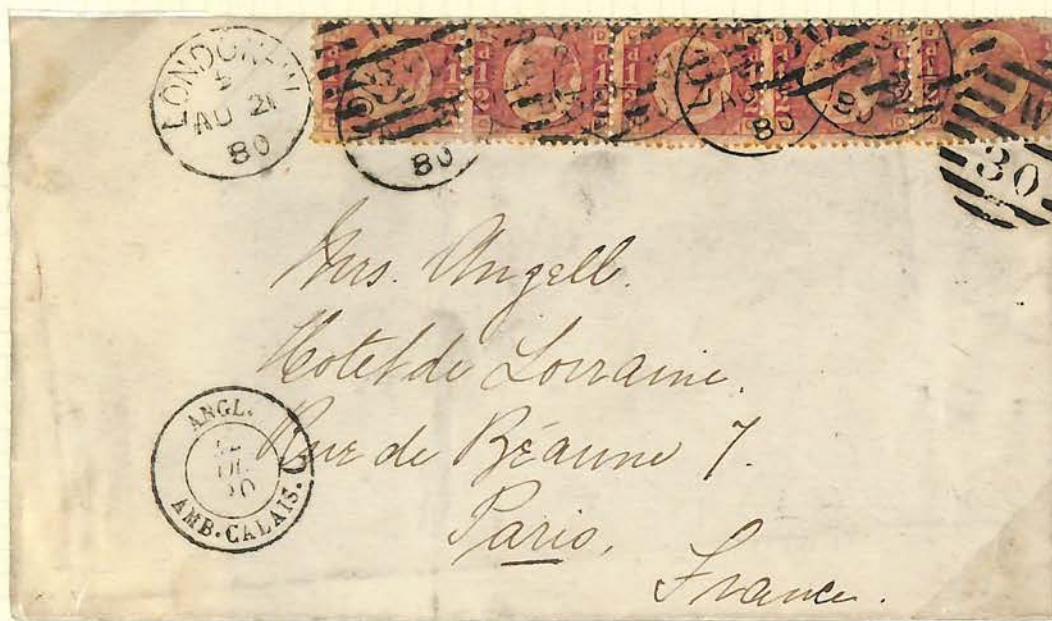 LONDON. W
AU 21
80
80
AU
80
80
30
Mrs. Angell.
Hotel de Lorraine.
Rue de Béaune 7.
Paris,
France.
ANGL.
AMB. CALAIS.